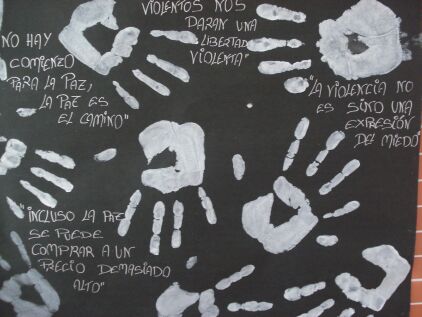 VIOLENTOS NOS
DARAN UNA
LIBERTAD
VIOLENTA"
NO HAY
COMIENZO
PARA LA PAZ,
LA PAZ ES
EL CAMINO"
"LA VIOLENCIA NO
ES SINO UNA
EXPRESIÓN
DEL MIEDO"
"INCLUSO LA PAZ
SE PUEDE
COMPRAR A UN
PRECIO DEMASIADO
ALTO"